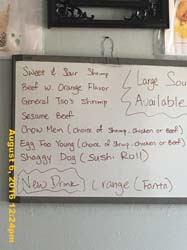 Sweet & Sour Shrimp
Beef w. Orange Flavor
General Tso's Shrimp
Sesame Beef
Chow Mein (Choice of Shrimp, Chicken or Beef)
Egg Foo Young (Choice of Shrimp, Chicken or Beef)
Shaggy Dog (Sushi Roll)
New Drink Orange (Fanta)
Large Sou
Available
August 6, 2016 12:24pm